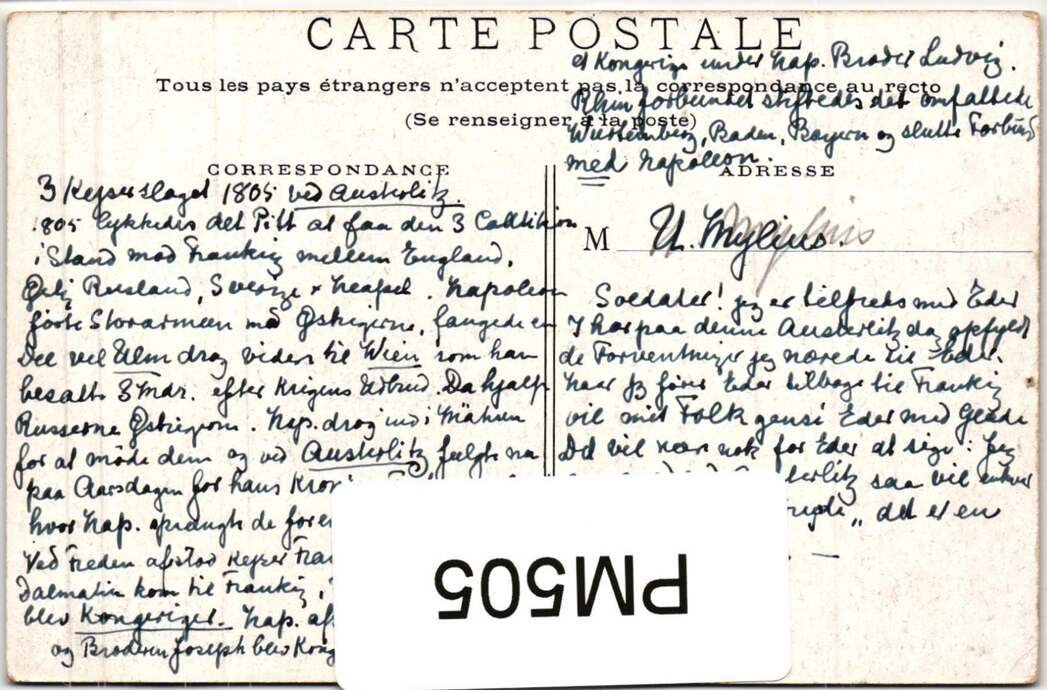 CARTE POSTALE
Tous les pays étrangers n'acceptent pas la correspondance au recto
(Se renseigner à la poste)
CORRESPONDANCE
3 Kejserslaget 1805 ved Austerlitz.
1805 lykkedes det Pitt at faa den 3 Coalition
i Stand mod Frankrig mellem England,
Rusland, Sverige + Neapel. Napoleon
førte Storarmeen mod Østrigerne, fangede en
Del ved Ulm drog videre til Wien som han
besatte 3 Mdr. efter Krigens Udbrud. Da hjalp
Russerne Østrigerne. Nap. drog ind i Mähren
for at møde dem og ved Austerlitz fulgte nu
paa Aarsdagen for hans
hvor Nap. sprængte de
Ved Freden afstod Kejser
Dalmatien kom til Frankrig,
blev Kongeriger. Nap.
og Broderen Joseph blev
et Kongerige under Nap. Broder Ludvig.
Rhinforbundet stiftedes det omfattede
Würtemberg, Baden, Bayern og slutte Forbund
med Napoleon.
ADRESSE
M U. Mylius.
Mylius
Soldater! jeg er tilfreds med Eder
I har paa denne Austerlitz dag opfyldt
de Forventninger jeg nærede til Eder.
Naar jeg fører Eder tilbage til Frankrig
vil mit Folk gense Eder med Glæde
Det vil være nok for Eder at sige: Jeg
saa vil enhver
„ det er en
PM505